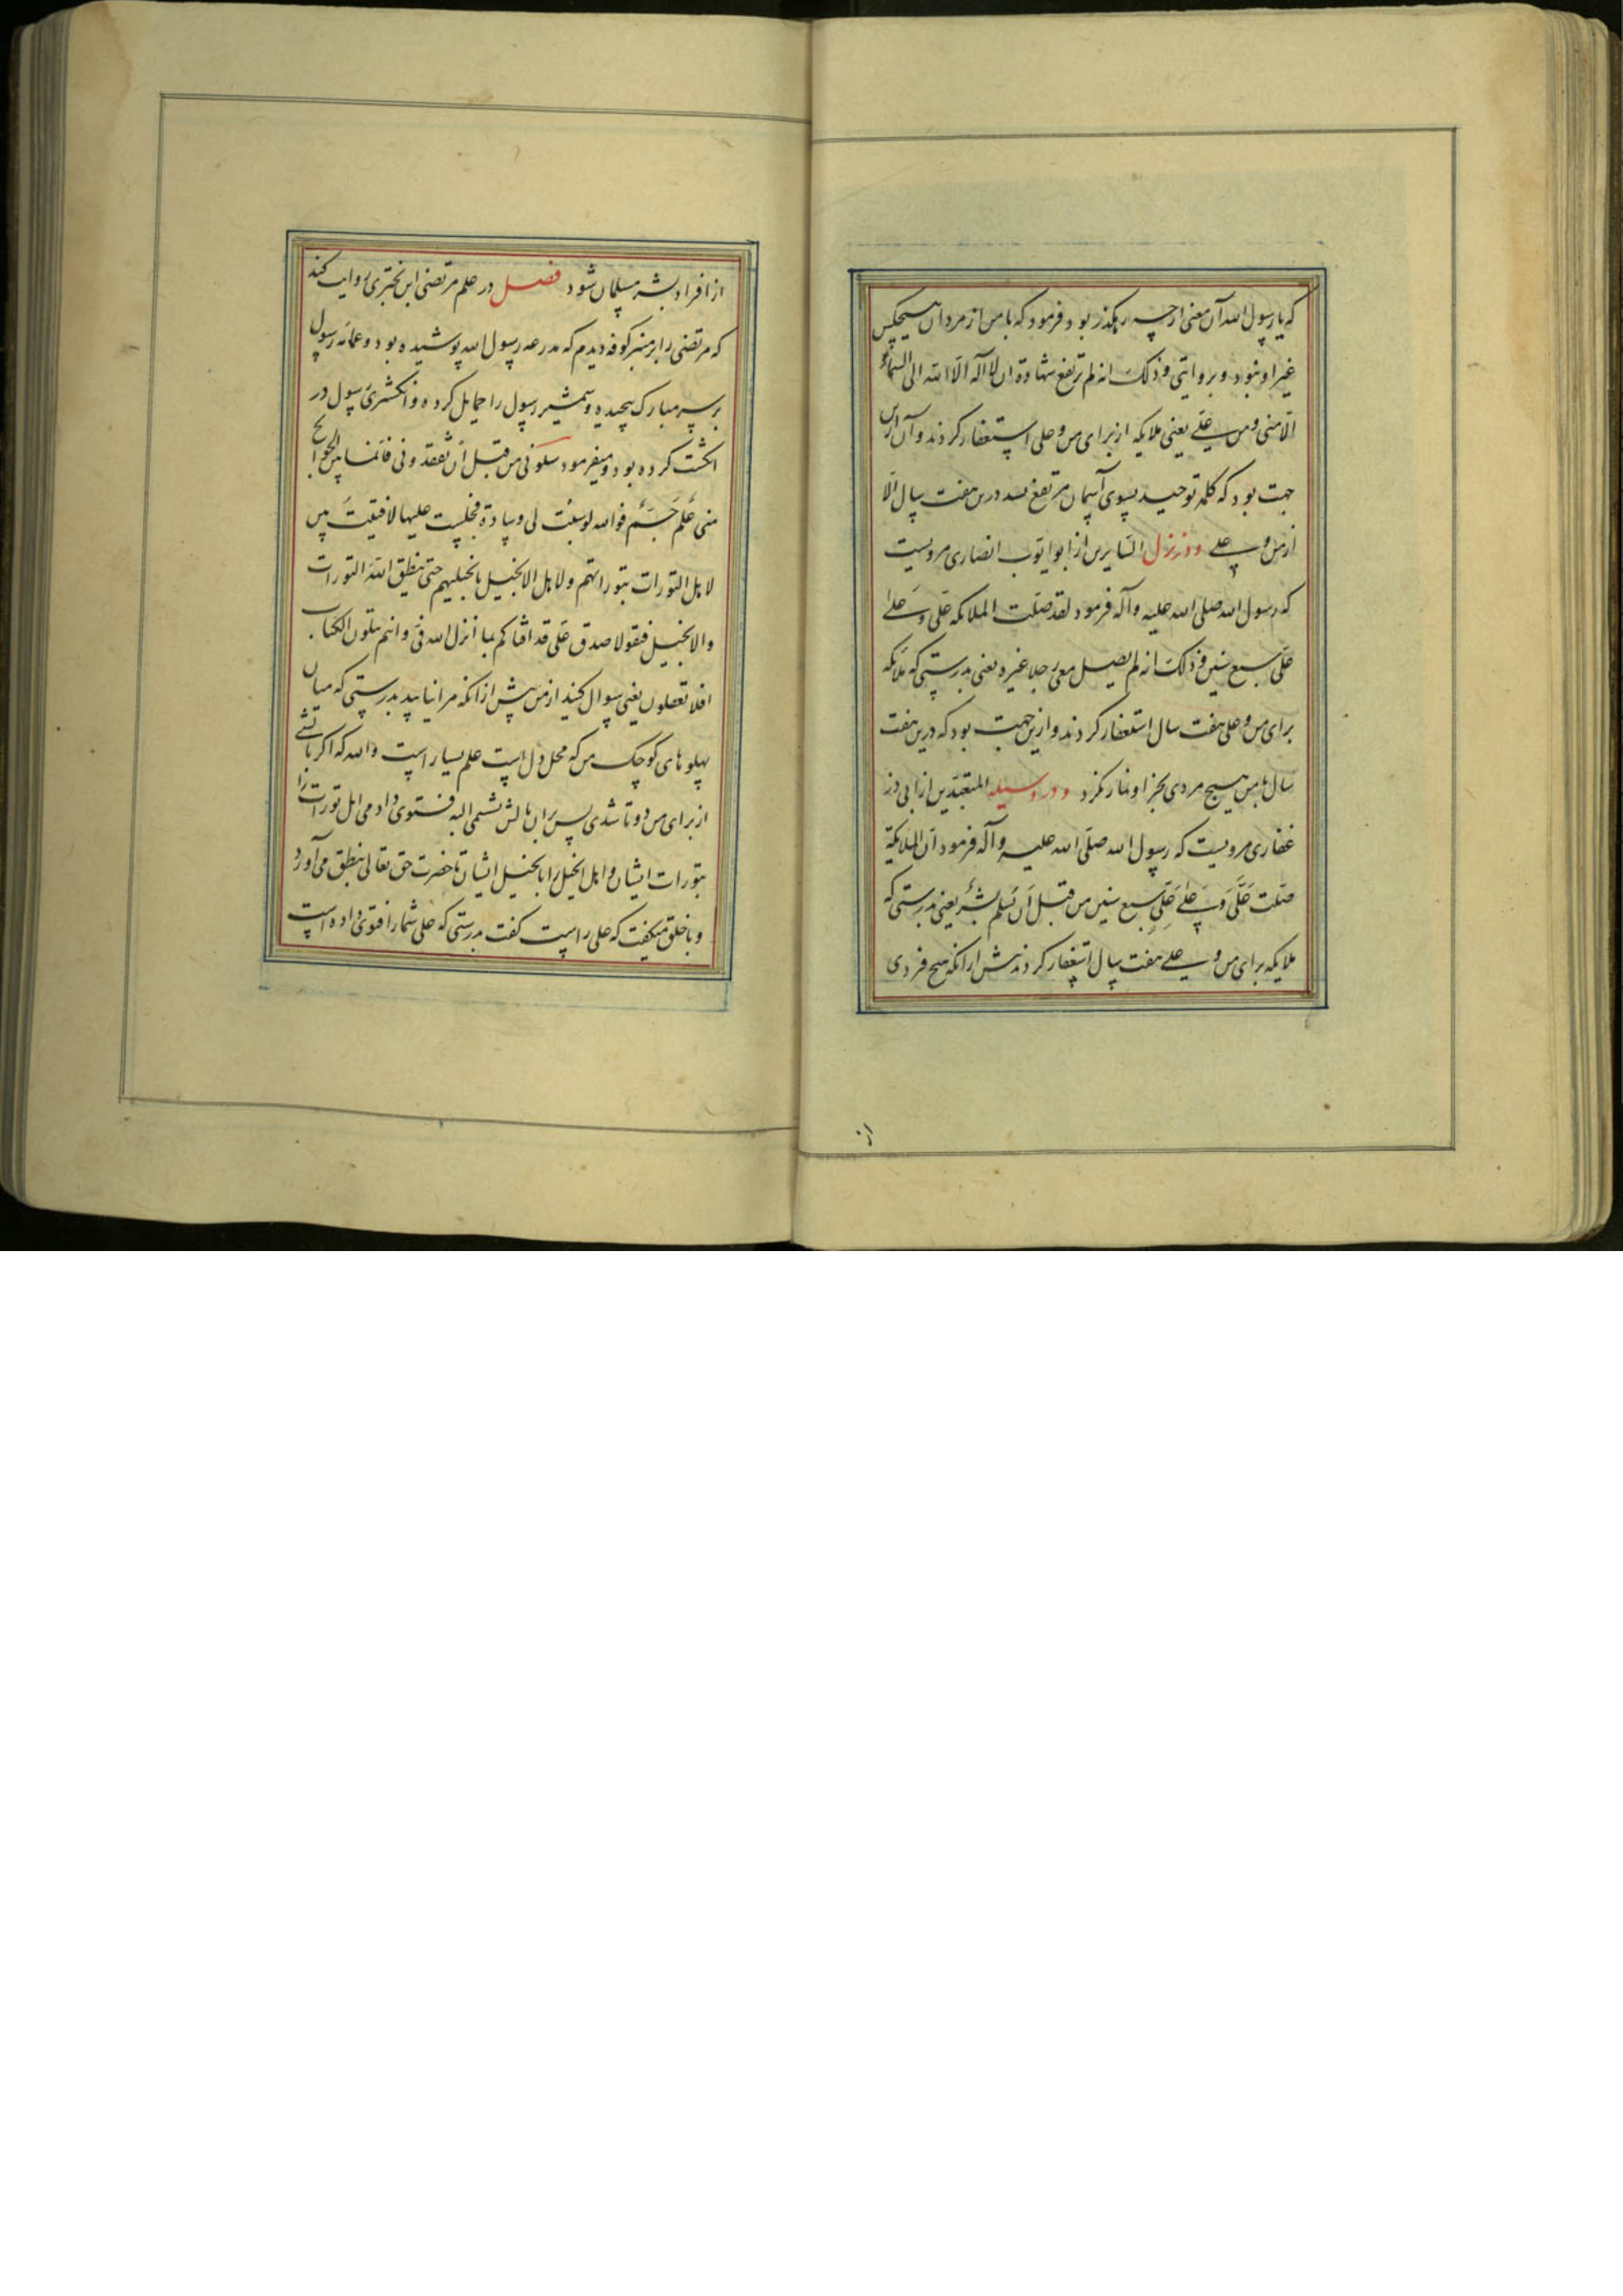 که یا رسول الله آن معنی از چه رهکذر بود فرمود که با من از مردان هیچکس
غیر او نبود و بروایتی و ذلک انه لم ترتفع شهادة ان لا اله الا الله الی السماء
الا منی و من علی یعنی ملایکه از برای من و علی استغفار کردند و آن ازین
جهت بود که کلمه توحید بسوی آسمان مرتفع نشد درین هفت سال الا
از من و علی و در نزل السایرین از ابو ایوب انصاری مرویست
که رسول الله صلی الله علیه و آله فرمود لقد صلت الملائکه علی و علی
علی سبع سنین و ذلک انه لم یصل معی رجلا غیره یعنی بدرستی که ملائکه
برای من و علی هفت سال استغفار کردند و ازین جهت بود که درین هفت
سال با من هیچ مردی بجز او نماز نکرد و در وسیله المتعبدین از ابی ذر
غفاری مرویست که رسول الله صلی الله علیه و آله فرمود ان الملایکة
صلت علی و علی علی سبع سنین من قبل ان یسلم بشر یعنی بدرستی که
ملایکه برای من و علی هفت سال استغفار کردند پیش از انکه هیچ فردی
از
از افراد بشر مسلمان شود فصل در علم مرتضی ابن بختری روایت کند
که مرتضی را بر منبر کوفه دیدم که مدرعه رسول الله پوشیده بود و عمامه رسول
بر سر مبارک پیچیده و شمشیر رسول را حمایل کرده و انکشتری رسول در
انکشت کرده بود و میفرمود سلونی من قبل ان تفقدونی فانما بین الجوانح
منی علم جم فوالله لو ثنیت لی وسادة فجلست علیها لافتیت بین
لاهل التورات بتوراتهم و لاهل الانجیل بانجیلهم حتی ینطق الله التورات
و الانجیل فیقولا صدق علی قد افتاکم بما انزل الله فی و انتم تتلون الکتاب
افلا تعقلون یعنی سوال کنید از من پیش از انکه مرا نیابید بدرستی که میان
پهلوهای کوچک من که محل دل است علم بسیار است والله که اکر بالشی
از برای من دو تا شدی پس بران بالش نشستمی البته فتوی دادمی اهل تورات را
بتورات ایشان و اهل انجیل را بانجیل ایشان تا حضرت حق تعالی بنطق می آورد
و با خلق میکفت که علی راست کفت بدرستی که علی شما را فتوی داده است